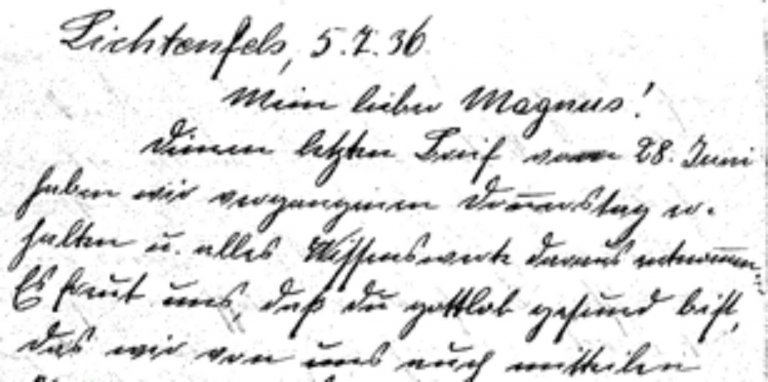 Lichtenfels, 5.7.36
Mein lieber Magnus!
Deinen letzten Brief vom 28. Juni
haben wir vergangenen Donnerstag er-
halten u. alles Wissenswerte daraus entnommen.
Es freut uns, daß du gottlob gesund bist,
das wir von uns auch mitteilen